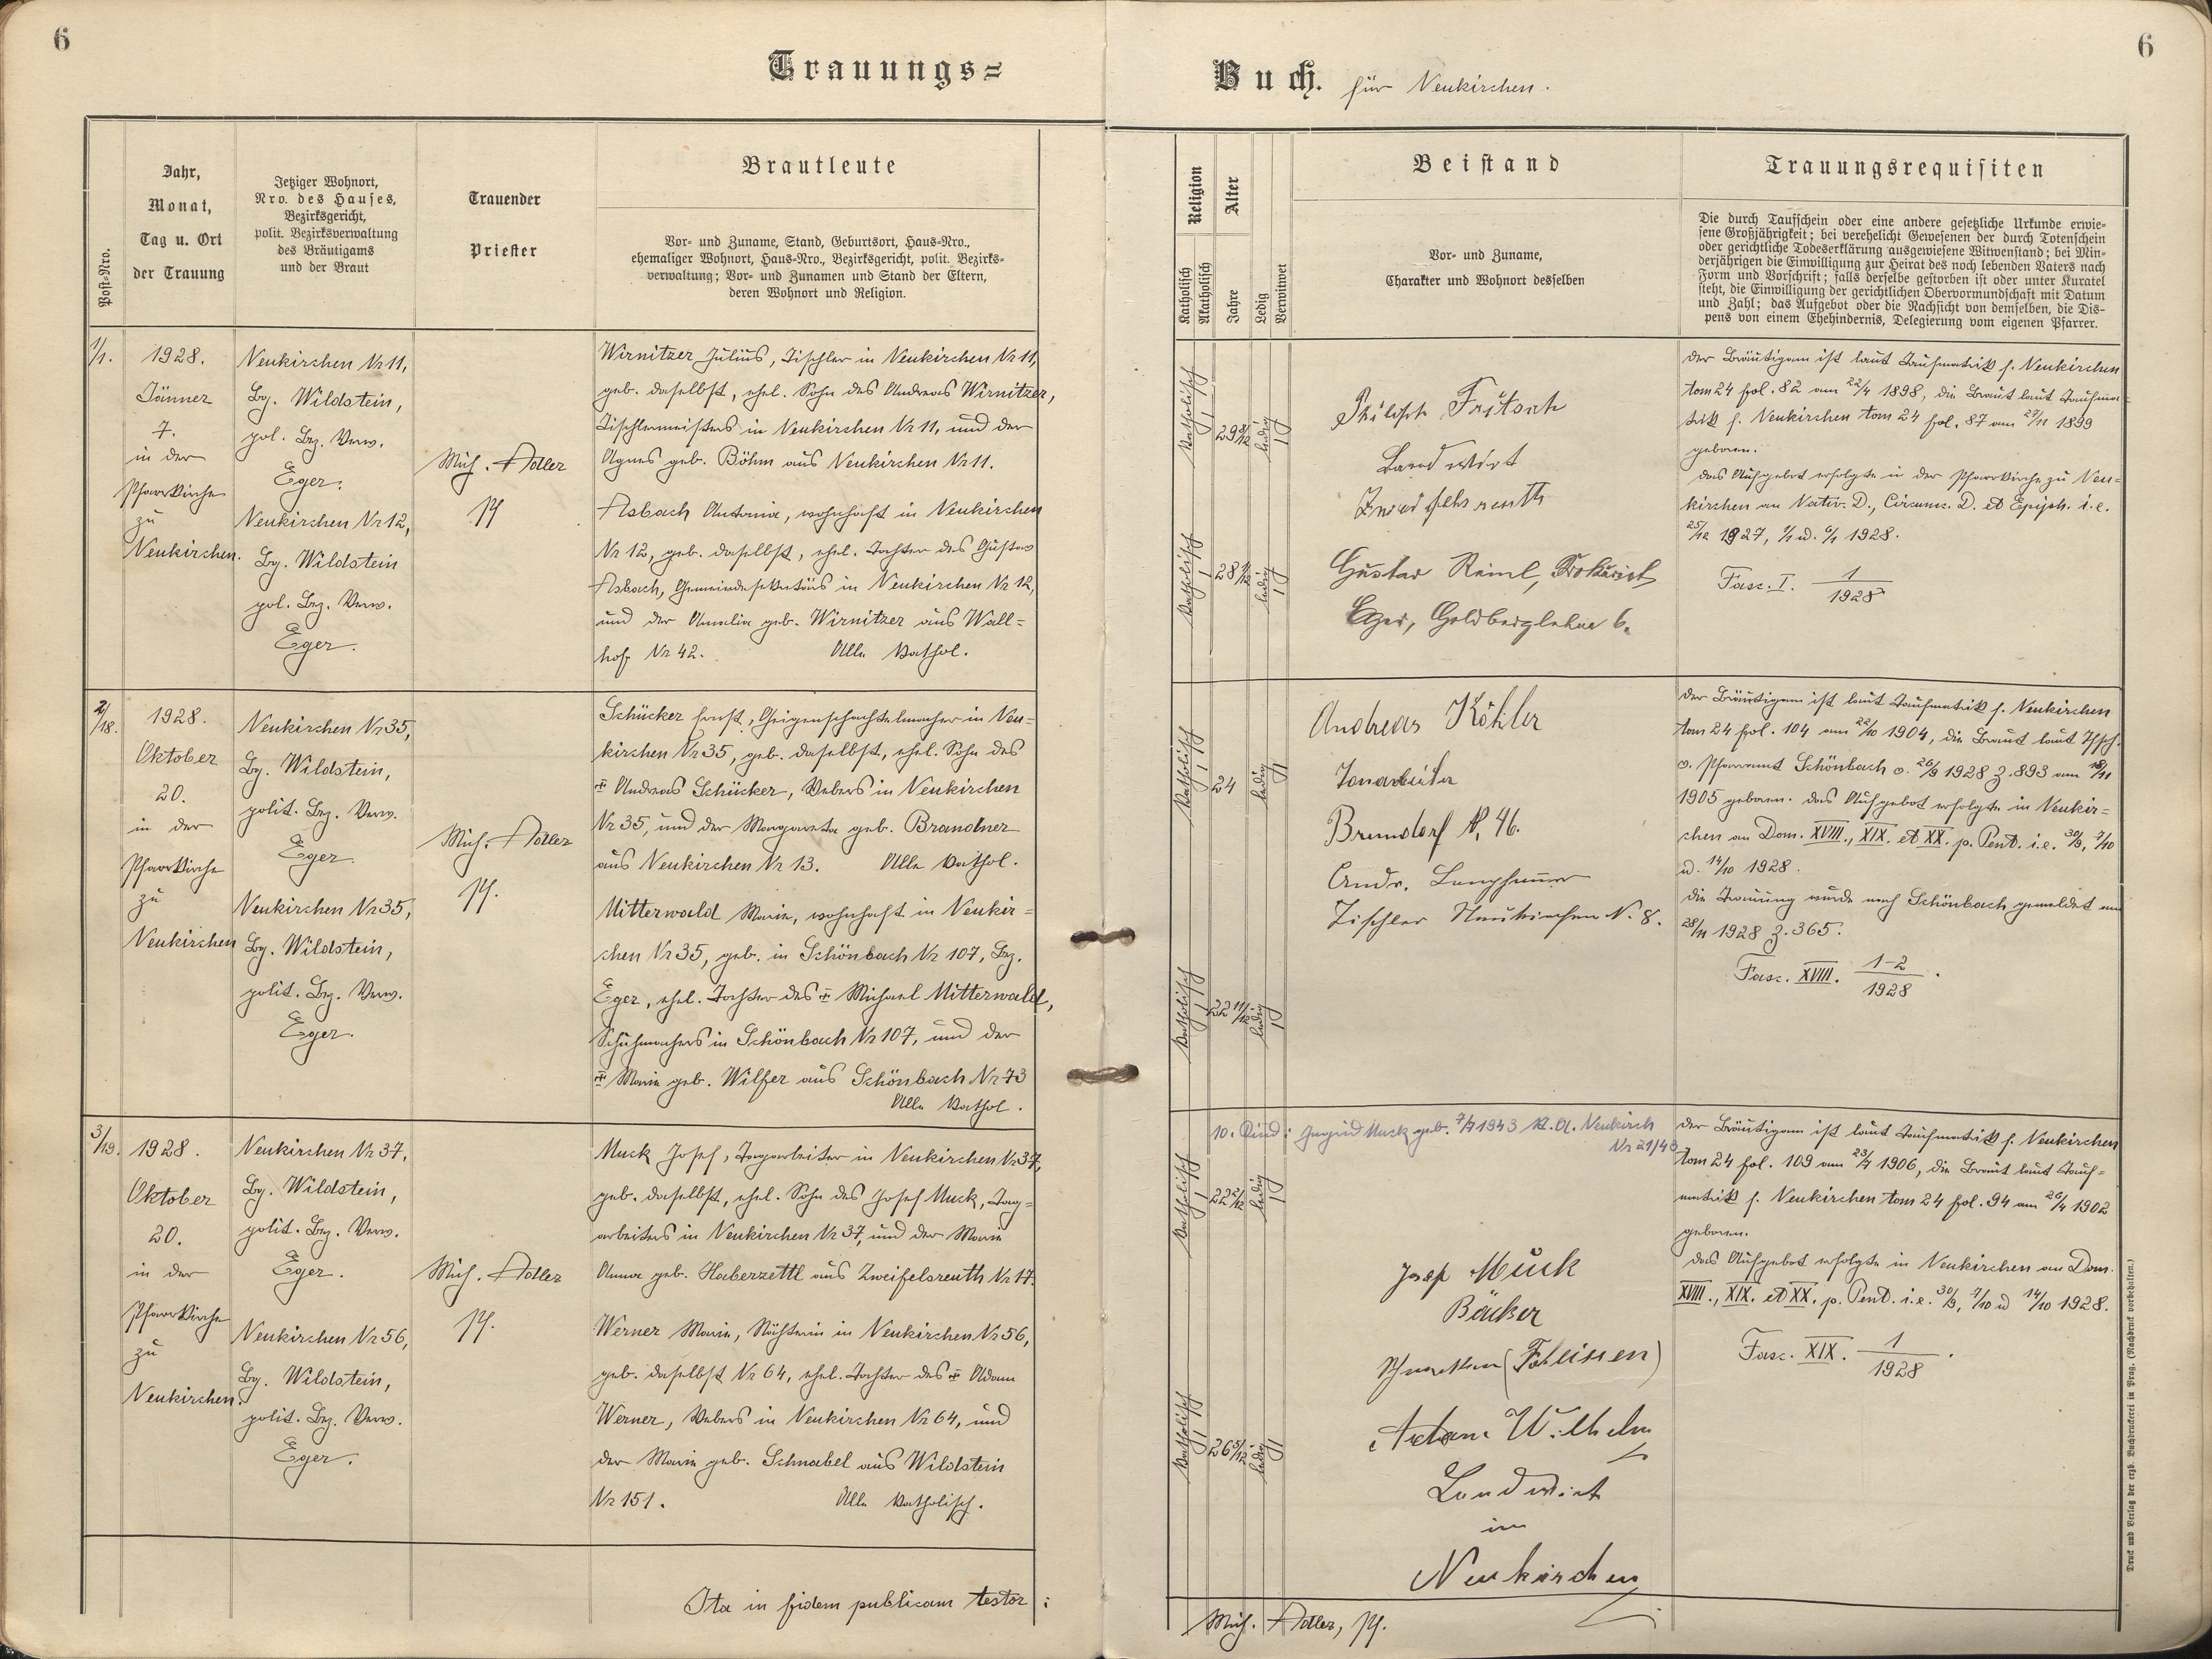 6
Trauungs=
Post-Nro.
Jahr,
Monat,
Tag u. Ort
der Trauung
Jetziger Wohnort,
Nro. des Hauses,
Bezirksgericht,
polit. Bezirksverwaltung
des Bräutigams
und der Braut
Trauender
Priester
Brautleute
Vor- und Zuname, Stand, Geburtsort, Haus-Nro.,
ehemaliger Wohnort, Haus-Nro., Bezirksgericht, polit. Bezirks-
verwaltung; Vor- und Zunamen und Stand der Eltern,
deren Wohnort und Religion.
1/1.
1928.
Jänner
7.
in der
Pfarrkirche
zu
Neukirchen.
Neukirchen Nr 11,
Bg. Wildstein,
pol. Bez. Verw.
Eger.
Neukirchen Nr 12,
Bg. Wildstein
pol. Bez. Verw.
Eger.
Mich. Adler
Pf
Wirnitzer Julius, Tischler in Neukirchen Nr 11,
geb. daselbst, ehel. Sohn des Andreas Wirnitzer,
Tischlermeisters in Neukirchen Nr 11, und der
Agnes geb. Böhm aus Neukirchen Nr 11.
Asbach Antonia, wohnhaft in Neukirchen
Nr 12, geb. daselbst, ehel. Tochter des Gustav
Asbach, Gemeindesekretärs in Neukirchen Nr 12,
und der Amalia geb. Wirnitzer aus Wall=
hof Nr 42. Alle kathol.
2/18.
1928.
Oktober
20.
in der
Pfarrkirche
zu
Neukirchen
Neukirchen Nr 35,
Bg. Wildstein,
polit. Bez. Verw.
Eger.
Neukirchen Nr 35,
Bg. Wildstein,
polit. Bez. Verw.
Eger.
Mich. Adler
Pf.
Schücker Ernst, Geigenschachtelmacher in Neu=
kirchen Nr 35, geb. daselbst, ehel. Sohn des
‡ Andreas Schücker, Webers in Neukirchen
Nr 35, und der Margareta geb. Brandner
aus Neukirchen Nr 13. Alle kathol.
Mitterwald Marie, wohnhaft in Neukir=
chen Nr 35, geb. in Schönbach Nr 107, Bez.
Eger, ehel. Tochter des ‡ Michael Mitterwald,
Schuhmachers in Schönbach Nr 107, und der
‡ Marie geb. Wilfer aus Schönbach Nr 73
Alle kathol.
3/19.
1928.
Oktober
20.
in der
Pfarrkirche
zu
Neukirchen.
Neukirchen Nr 37,
Bg. Wildstein,
polit. Bez. Verw.
Eger.
Neukirchen Nr 56,
Bg. Wildstein,
polit. Bez. Verw.
Eger.
Mich. Adler
Pf.
Muck Josef, Tagarbeiter in Neukirchen Nr 37,
geb. daselbst, ehel. Sohn des Josef Muck, Tag=
arbeiters in Neukirchen Nr 37, und der Marie
Anna geb. Haberzettl aus Zweifelsreuth Nr 17.
Werner Marie, Nähterin in Neukirchen Nr 56,
geb. daselbst Nr 64, ehel. Tochter des ‡ Adam
Werner, Webers in Neukirchen Nr 64, und
der Marie geb. Schnabel aus Wildstein
Nr 151. Alle katholisch.
Ita in fidem publicam testor:
6
Buch. für Neukirchen.
Religion
Katholisch
Akatholisch
Alter
Jahre
Ledig
Verwitwet
Beistand
Vor- und Zuname,
Charakter und Wohnort desselben
Trauungsrequisiten
Die durch Taufschein oder eine andere gesetzliche Urkunde erwie-
sene Großjährigkeit; bei verehelicht Gewesenen der durch Totenschein
oder gerichtliche Todeserklärung ausgewiesene Witwenstand; bei Min-
derjährigen die Einwilligung zur Heirat des noch lebenden Vaters nach
Form und Vorschrift; falls derselbe gestorben ist oder unter Kuratel
steht, die Einwilligung der gerichtlichen Obervormundschaft mit Datum
und Zahl; das Aufgebot oder die Nachsicht von demselben, die Dis-
pens von einem Ehehindernis, Delegierung vom eigenen Pfarrer.
Katholisch
29 8/12
ledig
Katholisch
28 1/12
ledig
Fritsch
Landwirt
Gustav Reiml, Prokurist
Eger, Goldberglehne 6.
der Bräutigam ist laut Taufmatrik f. Neukirchen
tom 24 fol. 82 am 22/4 1898, die Braut laut Taufma=
trik f. Neukirchen tom 24 fol. 87 am 27/11 1899
geboren.
das Aufgebot erfolgte in der Pfarrkirche zu Neu=
kirchen an Nativ. D., Circumc. D. et Epiph. i. e.
25/12 1927, 1/1 u. 6/1 1928.
Fasc. I. 1/1928
Katholisch
24
ledig
Katholisch
22 11/12
ledig
Andreas Köhler
Tonarbeiter
Brunndorf N. 46.
Andr.
Tischler Neukirchen N. 8.
der Bräutigam ist laut Taufmatrik f. Neukirchen
tom 24 fol. 104 am 22/10 1904, die Braut laut Tfsch.
v. Pfarramt Schönbach v. 26/9 1928 Z. 893 am 18/11
1905 geboren. das Aufgebot erfolgte in Neukir=
chen an Dom. XVIII., XIX. et XX. p. Pent. i. e. 30/9, 7/10
u. 14/10 1928.
die Trauung wurde nach Schönbach gemeldet am
28/11 1928 Z. 365.
Fasc. XVIII. 1-2/1928.
10. Kind: Ingrid Muck geb. 7/7 1943 St. A. Neukirch
Nr 21/43
Katholisch
22 2/12
ledig
Katholisch
26 5/12
ledig
Josef Muck
Bäcker
(Fohlissen)
Adam Wilhelm
Landwirt
in
Neukirchen
der Bräutigam ist laut Taufmatrik f. Neukirchen
tom 24 fol. 109 am 23/7 1906, die Braut laut Tauf=
matrik f. Neukirchen tom 24 fol. 94 am 26/4 1902
geboren.
das Aufgebot erfolgte in Neukirchen an Dom.
XVIII., XIX. et XX. p. Pent. i. e. 30/9, 7/10 u 14/10 1928.
Fasc. XIX. 1/1928.
Mich. Adler, Pf.
Druck und Verlag der erzb. Buchdruckerei in Prag. (Nachdruck vorbehalten.)